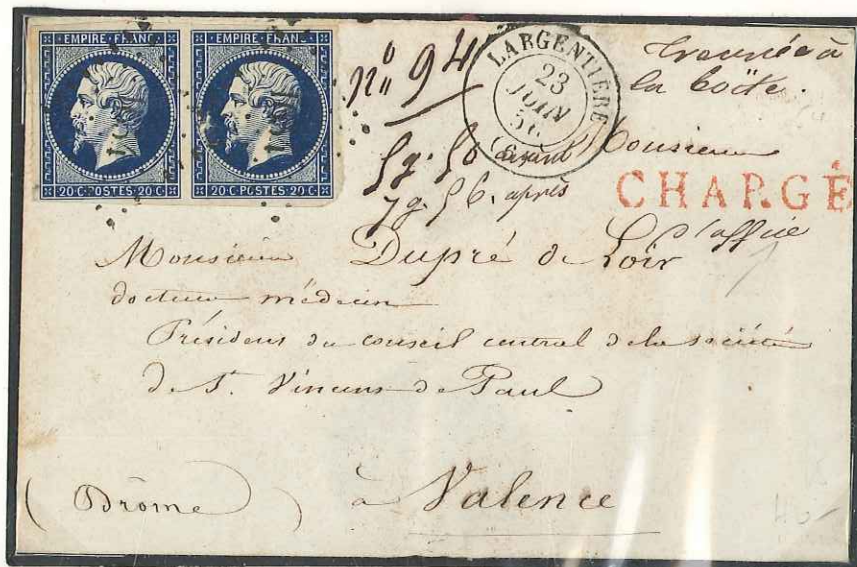 EMPIRE FRANC
20 C. POSTES 20 C.
EMPIRE FRANC
20 C. POSTES 20 C.
n° 94
LARGENTIÈRE
23
JUIN
56
(6)
trouvée à
la boîte.
5 g. 50 avant
7 g. 56. après
Monsieur
CHARGÉ
d'office
Monsieur Dupré de Loir
docteur médecin
Président du conseil central de la société
de St. Vincent de Paul
(Drôme) à Valence